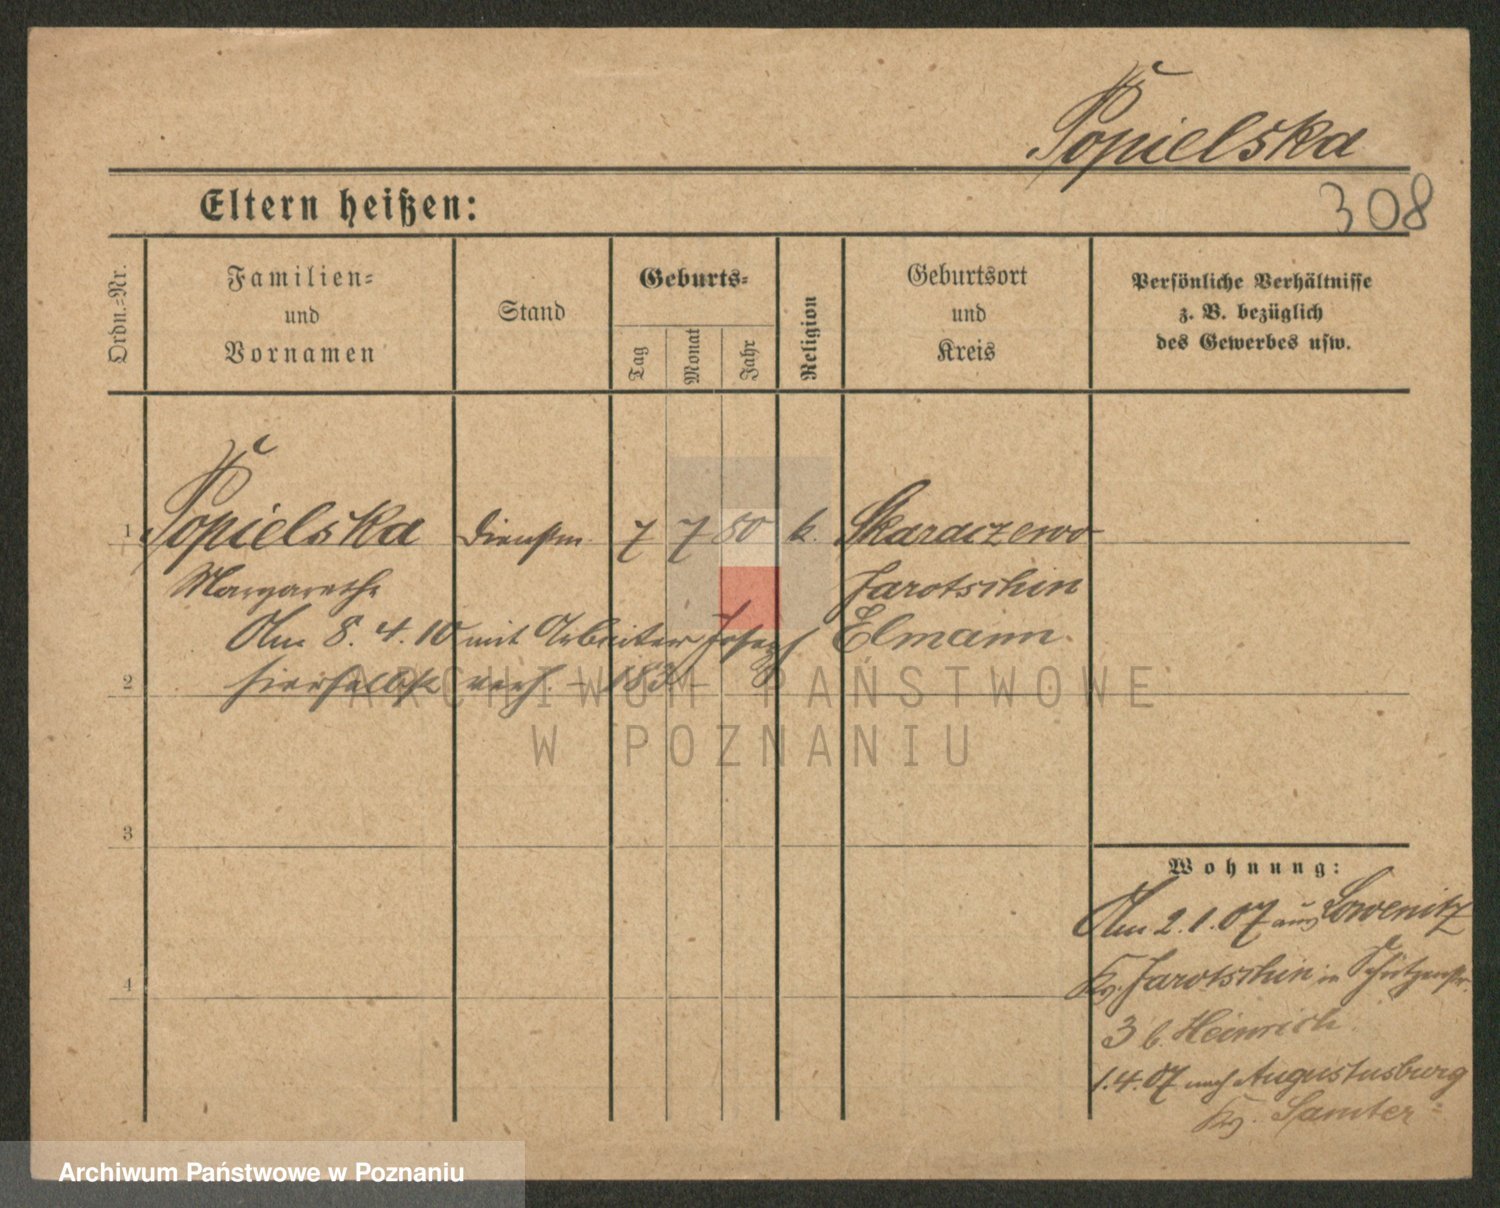 Popielska
Eltern heißen:
308
Ordn.=Nr.
Familien=
und
Vornamen
Stand
Geburts=
Tag
Monat
Jahr
Religion
Geburtsort
und
Kreis
Persönliche Verhältnisse
z. B. bezüglich
des Gewerbes usw.
1 Popielska Dienstm. 7 7 80 k. Skaraczewo
Margarethe Jarotschin
Am 8. 4. 10 mit Arbeiter Joseph Elmann
2 hierselbst verh. - 183 -
ARCHIWUM PAŃSTWOWE
W POZNANIU
3
Wohnung:
Am 2. 1. 07 aus Lowenitz
4 Kr. Jarotschin in Schützenstr.
3 b. Heinrich.
1. 4. 07 nach Augustusburg
Kr. Samter
Archiwum Państwowe w Poznaniu